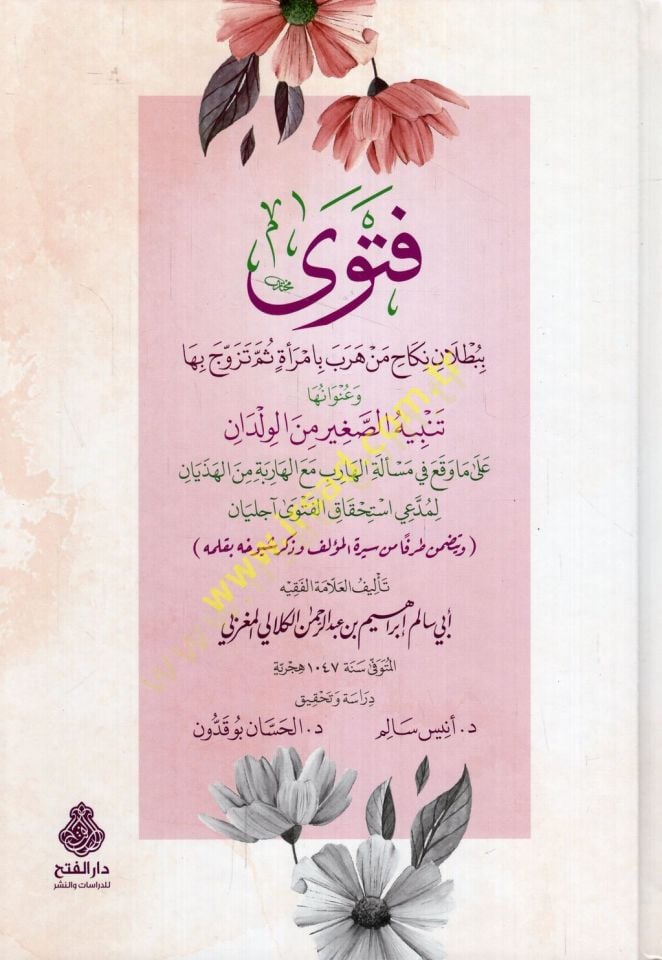 فَتْوَى
بِبُطْلَانِ نِكَاحِ مَنْ هَرَبَ بِامْرَأَةٍ ثُمَّ تَزَوَّجَ بِهَا
وَعُنْوَانُهَا
تَنْبِيهُ الصَّغِيرِ مِنَ الوِلْدَانِ
عَلَى مَا وَقَعَ فِي مَسْأَلَةِ الهَارِبِ مَعَ الهَارِبَةِ مِنَ الهَذَيَانِ
لِمُدَّعِي اسْتِحْقَاقِ الفَتْوَى آجليَان
( ويتضمن طرفًا من سيرة المؤلف وذكر شيوخه بقلمه )
تَأْلِيفُ العَلَّامَةِ الفَقِيهِ
أبي سالم إبراهيم بن عبد الرحمن الكلالي المغربي
المُتَوَفَّى سَنَةَ ١٠٤٧ هِجْرِيَّة
دِرَاسَة وَتَحْقِيق
د. أنيس سَالِم
د. الحَسَّان بُوقدُّون
www.irsad.com.tr
دار الفتح
للدراسات والنشر